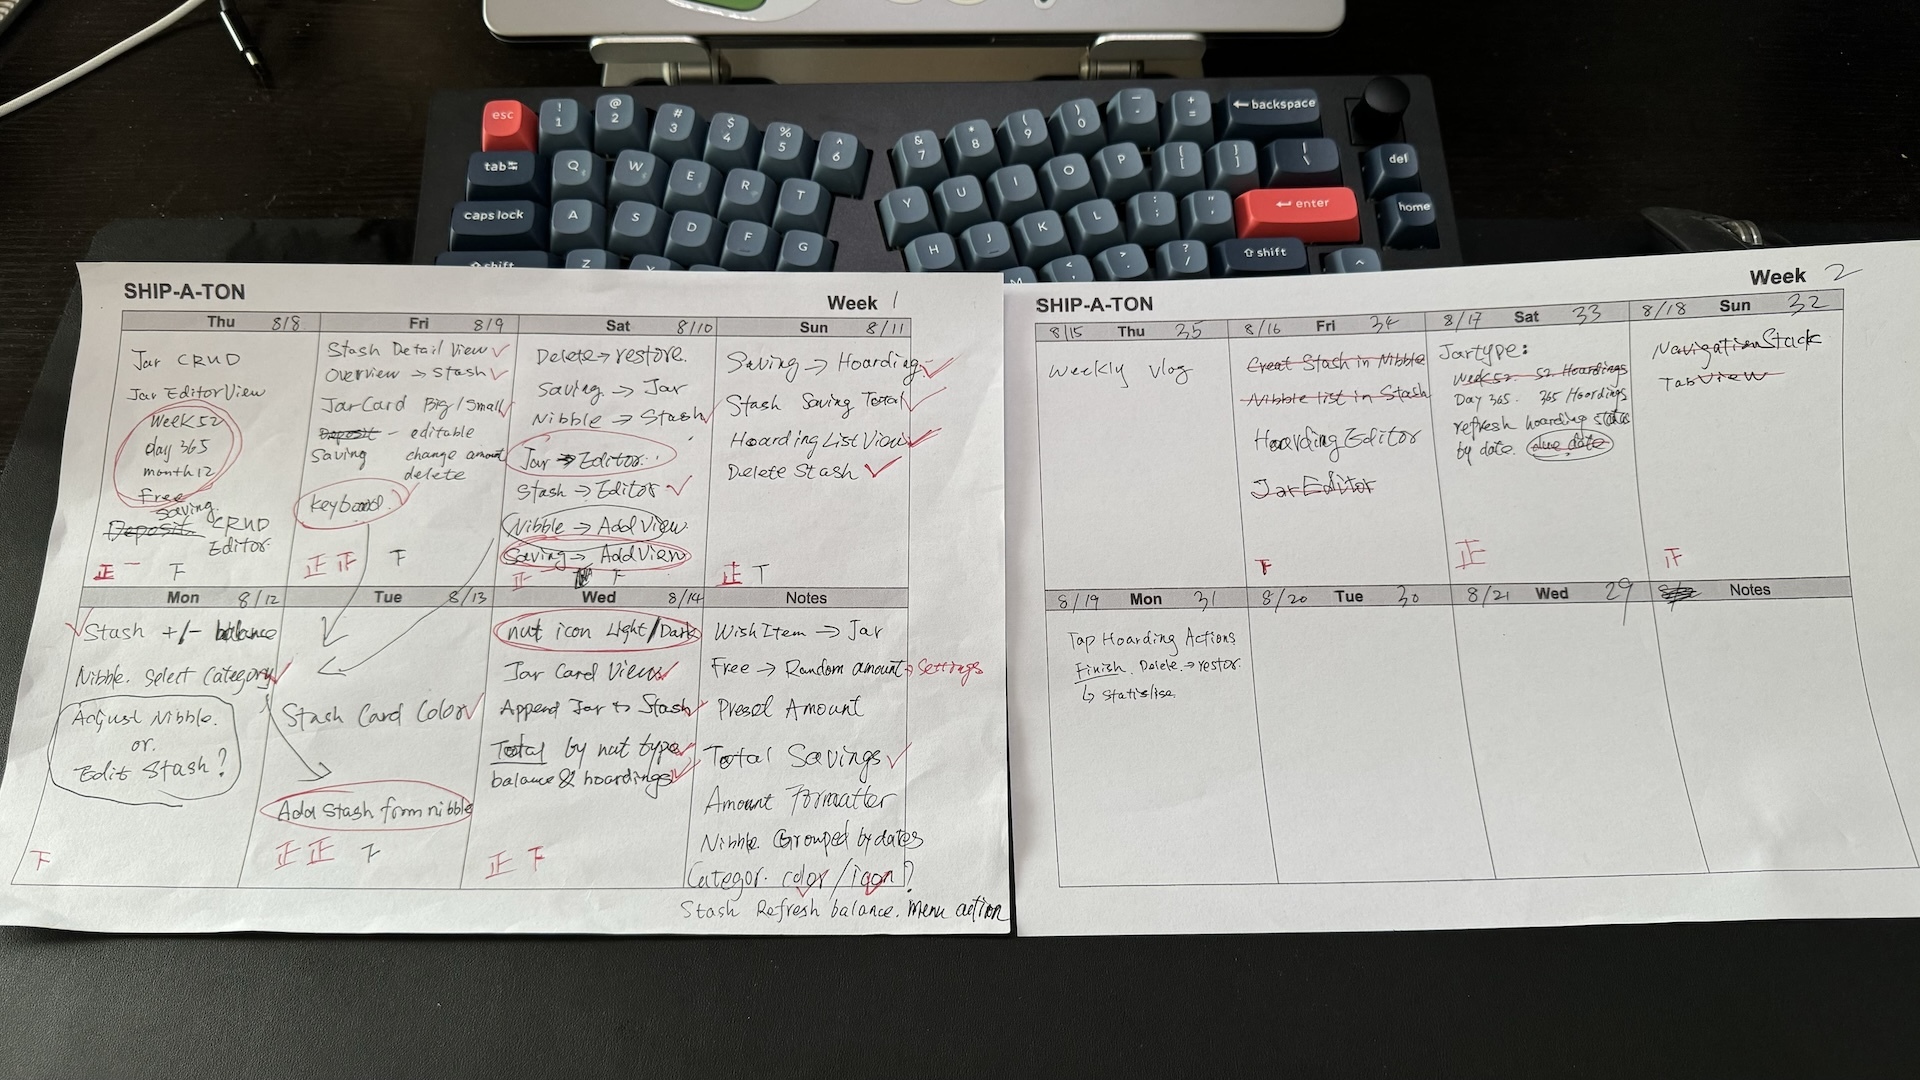 esc
! 1
@ 2
# 3
$ 4
% 5
^ 6
& 7
* 8
( 9
) 0
- -
+ =
backspace
tab
Q W E R T
Y U I O P
{ [
} ]
| \
del
caps lock
A S D F G
H J K L
: ;
" '
enter
home
shift
Z
M
<
>
? /
shift
SHIP-A-TON
Week 1
Thu 8/8
Jar CRUD
Jar EditorView
Week 52
day 365
month 12
Free
Saving
Deposit CRUD
Editor
正一 下
Fri 8/9
Stash Detail View ✓
Overview → Stash ✓
JarCard Big/Small ✓
Deposit - editable
Saving change amount
delete
keyboard ✓
正 正 下
Sat 8/10
Delete → restore.
Saving → Jar
Nibble → Stash ✓
Jar → Editor
Stash → Editor ✓
Nibble → Add View
Saving → Add View
正 下
Sun 8/11
Saving → Hoarding ✓
Stash Saving Total ✓
Hoarding List View ✓
Delete Stash ✓
正 T
Mon 8/12
✓ Stash +/- balance
Nibble. Select Category ✓
Adjust Nibble.
or.
Edit Stash?
下
Tue 8/13
Stash Card Color ✓
Add Stash from nibble
正 正 下
Wed 8/14
nut icon Light/Dark
Jar Card Views ✓
Append Jar to Stash ✓
Total by nut type ✓
balance & hoardings ✓
正 下
Notes
WishItem → Jar
Free → Random amount → Settings
Preset Amount
Total Savings ✓
Amount Formatter
Nibble. Grouped by dates
Categor. color/icon?
Stash Refresh balance. Menu action
SHIP-A-TON
Week 2
8/15 Thu 35
Weekly Vlog
8/16 Fri 34
Creat Stash in Nibble
Nibble list in Stash
Hoarding Editor
Jar Editor
下
8/17 Sat 33
Jartype:
Week 52. 52 Hoardings
Day 365. 365 Hoardings
refresh hoarding status
by date. due date
正
8/18 Sun 32
NavigationStack
TabView
8/19 Mon 31
Tap Hoarding Actions
Finish. Delete. → restor.
↳ statislise.
8/20 Tue 30
8/21 Wed 29
Notes